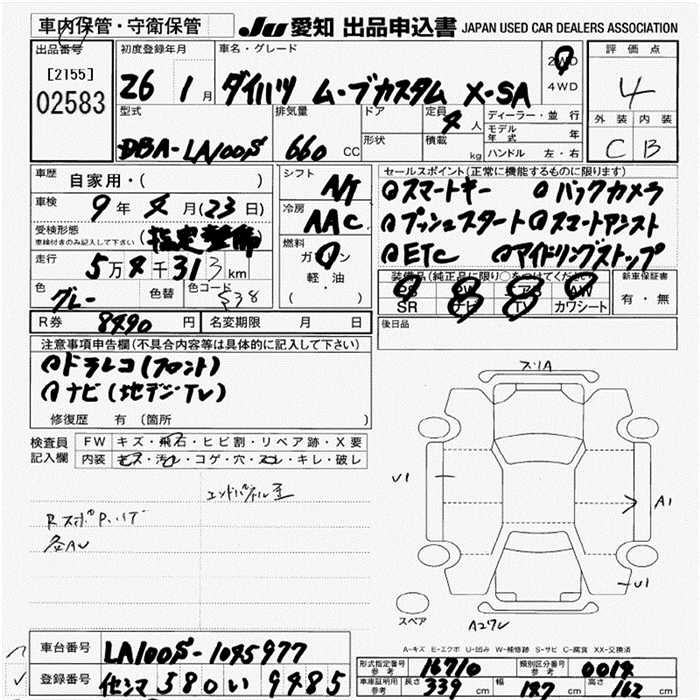 車内保管・守衛保管
JU 愛知 出品申込書 JAPAN USED CAR DEALERS ASSOCIATION
出品番号
[2155]
02583
初度登録年月
26 1月
車名・グレード
ダイハツ ムーブカスタム X-SA
2WD
4WD
評価点
4
外装 内装
C B
型式
DBA-LA100S
排気量
660 CC
ドア
形状
定員
4人
積載
kg
ディーラー・並行
モデル年式 年
ハンドル 左・右
車歴
自家用・( )
車検
9年4月(23日)
受検形態
車検付きのみ記入して下さい
(指定整備)
走行
5万4千313km
色
グレー
色替
色コード
S38
シフト
AT
冷房
AAC
燃料
ガソリン
軽・油
( )
セールスポイント(正常に機能するものに限ります)
スマートキー バックカメラ
プッシュスタート スマートアシスト
ETC アイドリングストップ
装備品(純正品に限り○をつけてください)
PS PW エアB AW
SR ナビ TV カワシート
新車保証書
有・無
後日品
R券 8490円
名変期限 月 日
注意事項申告欄(不具合内容等は具体的に記入して下さい)
ドラレコ(フロント)
ナビ(地デジTV)
修復歴 有 (箇所 )
検査員記入欄
FW キズ・飛石・ヒビ割・リペア跡・X要
内装 キズ・汚れ・コゲ・穴・スレ・キレ・破レ
エンドパネル歪
灸AW
スリA
U1
A1
U1
スペア
A-キズ E-エクボ U-凹み W-補修跡 S-サビ C-腐食 XX-交換済
車台番号
LA100S-1045977
登録番号
580 い 9485
形式指定番号 参考 16710
類別区分番号 参考 0014
車庫証明用 参考
長さ 339cm 幅 147cm 高さ 162cm